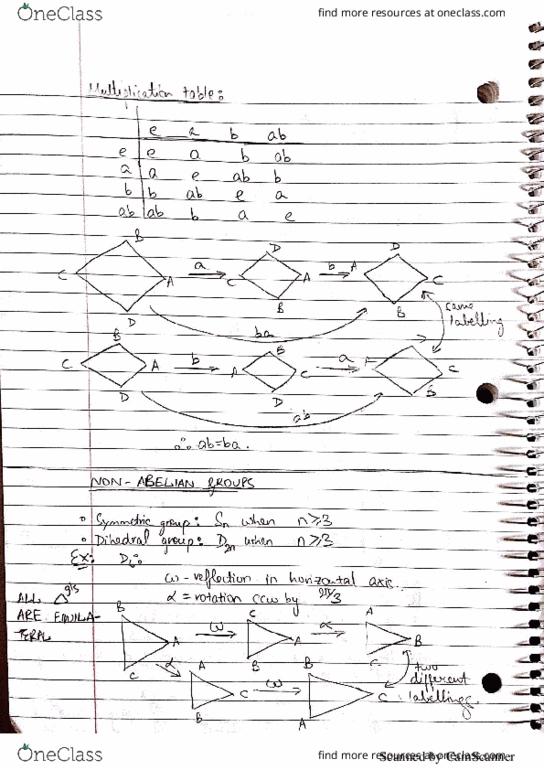 OneClass
find more resources at oneclass.com
Multiplication table:
e a b ab
e e a b ab
a a e ab b
b b ab e a
ab ab b a e
B
D
D
C A a C A b A C
D B B
ba
same labelling
B
B
C A b A C a A C
D D B
ab
∴ ab=ba.
NON-ABELIAN GROUPS
• Symmetric group: Sn when n≥3
• Dihedral group: D2n when n≥3
Ex: D6:
ω - reflection in horizontal axis.
α = rotation ccw by 2π/3
ALL △gls
ARE EQUILA-
TERAL
B C A
A ω A α B
C B C
α A B two different labellings.
C ω C
B A
OneClass
find more resources at oneclass.com
Scanned by CamScanner